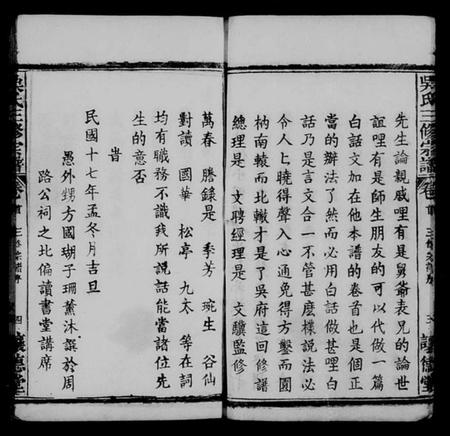 吳氏三修宗譜
卷首
先生論親戚哩有是舅爺表兄的論世
誼哩有是師生朋友的可以代做一篇
白話文加在他本譜的卷首也是個正
當的辦法了然而必用白話做甚哩白
話乃是言文合一不管甚麼樣說法必
令人上曉得聲入心通免得方鑿而圓
枘南轅而北轍才是了吳府這回修譜
總理是 文聘經理是 文驥監修
讓德堂
吳氏三修宗譜
卷首
四
讓德堂
萬春 謄錄是 季芳 琬生 谷仙
對讀 國華 松亭 九太 等在詞
均有職務不識我所說話能當諸位先
生的意否
旹
民國十七年孟冬月吉旦
愚外甥方國瑚子珊薰沐譔於周
路公祠之北偏讀書堂講席